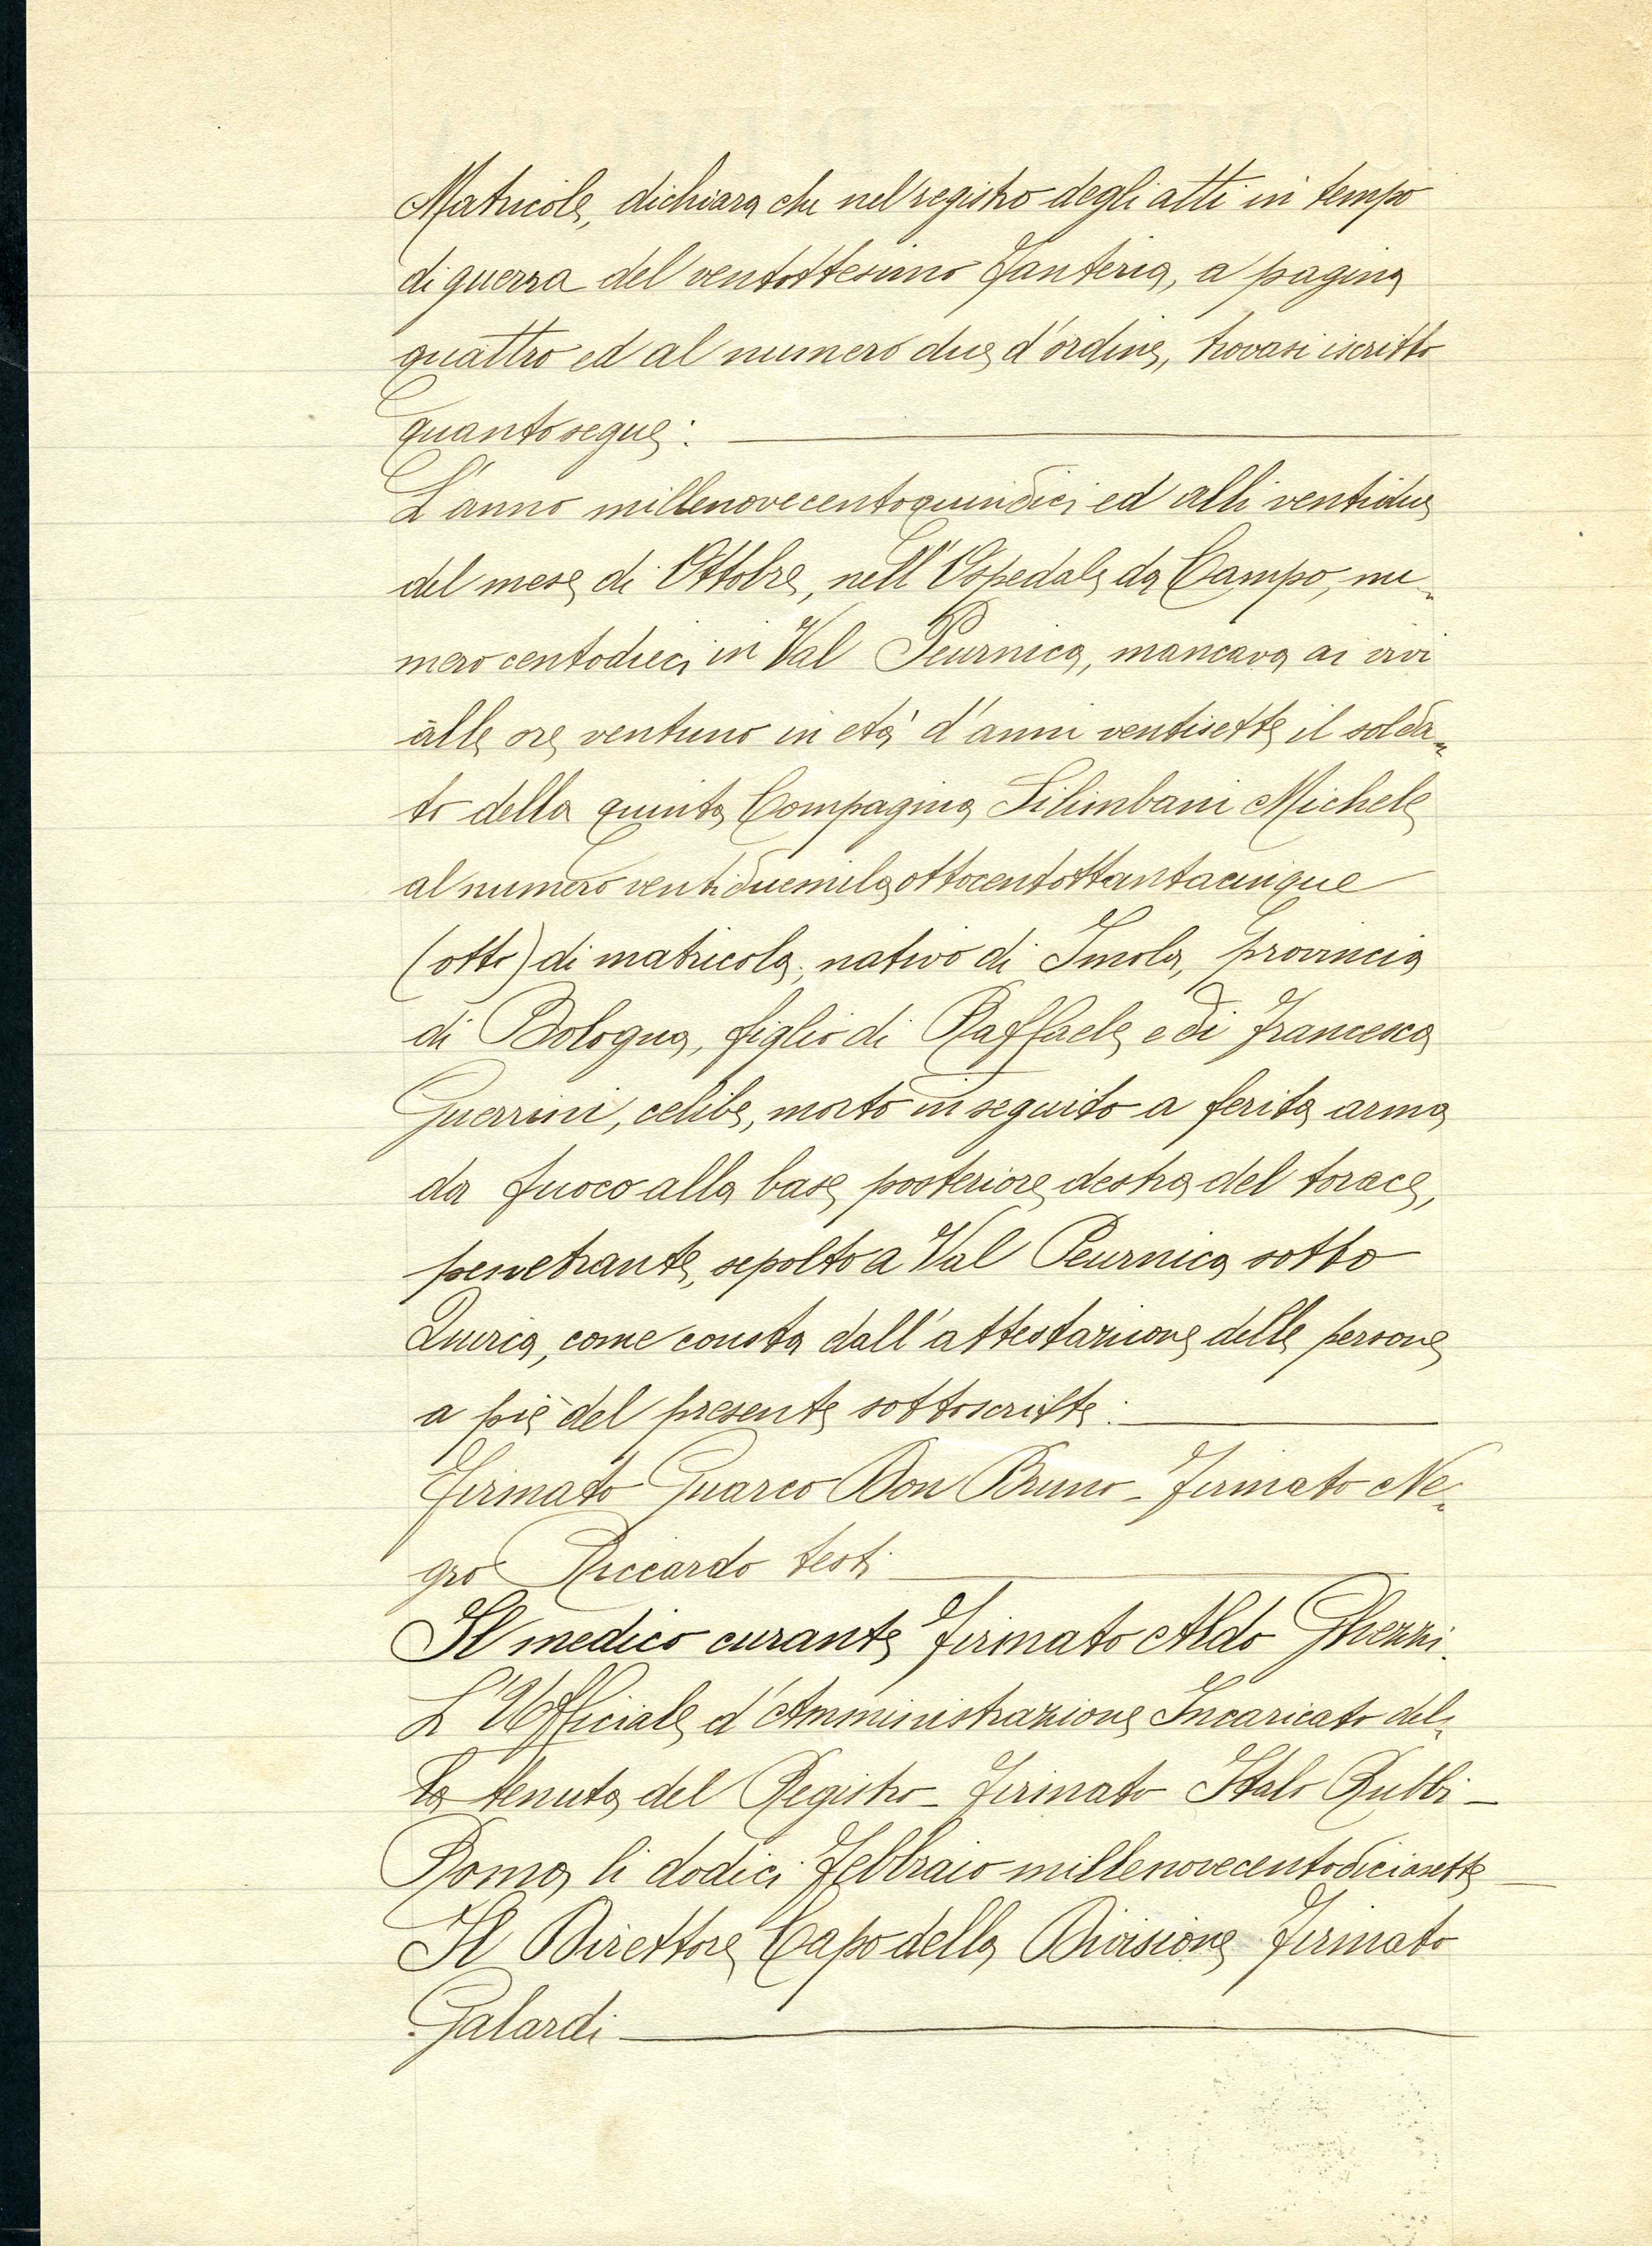 Matricole, dichiara che nel registro degli atti in tempo
di guerra del ventottesimo Fanteria, a pagina
quattro ed al numero due d'ordine, trovasi iscritto
quanto segue:
L'anno millenovecentoquindici ed alli ventidue
del mese di Ottobre, nell'Ospedale da Campo, nu-
mero centodieci in Val Peurnica, mancava ai vivi
alle ore ventuno in età d'anni ventisette il solda-
to della quinta Compagina Silimbani Michele
al numero ventiduemilaottocentottantacinque
(otto) di matricola; nativo di Imola, provincia
di Bologna, figlio di Raffaele e di Francesca
Guerrini, celibe, morto in seguito a ferita arma
da fuoco alla base posteriore destra del torace,
penetrante, sepolto a Val Peurnica sotto
come consta dall'attestazione delle persone
a piè del presente sottoscritte:
Firmato Guarco Don Bruno - Firmato Ne-
gro Riccardo testi
Il medico curante Firmato Aldo Ghezzi.
L'Ufficiale d'Amministrazione Incaricato del-
la tenuta del Registro - Firmato Italo Rubbi -
Roma li dodici Febbraio millenovecentodiciasette
Il Direttore Capo della Divisione Firmato
Galardi